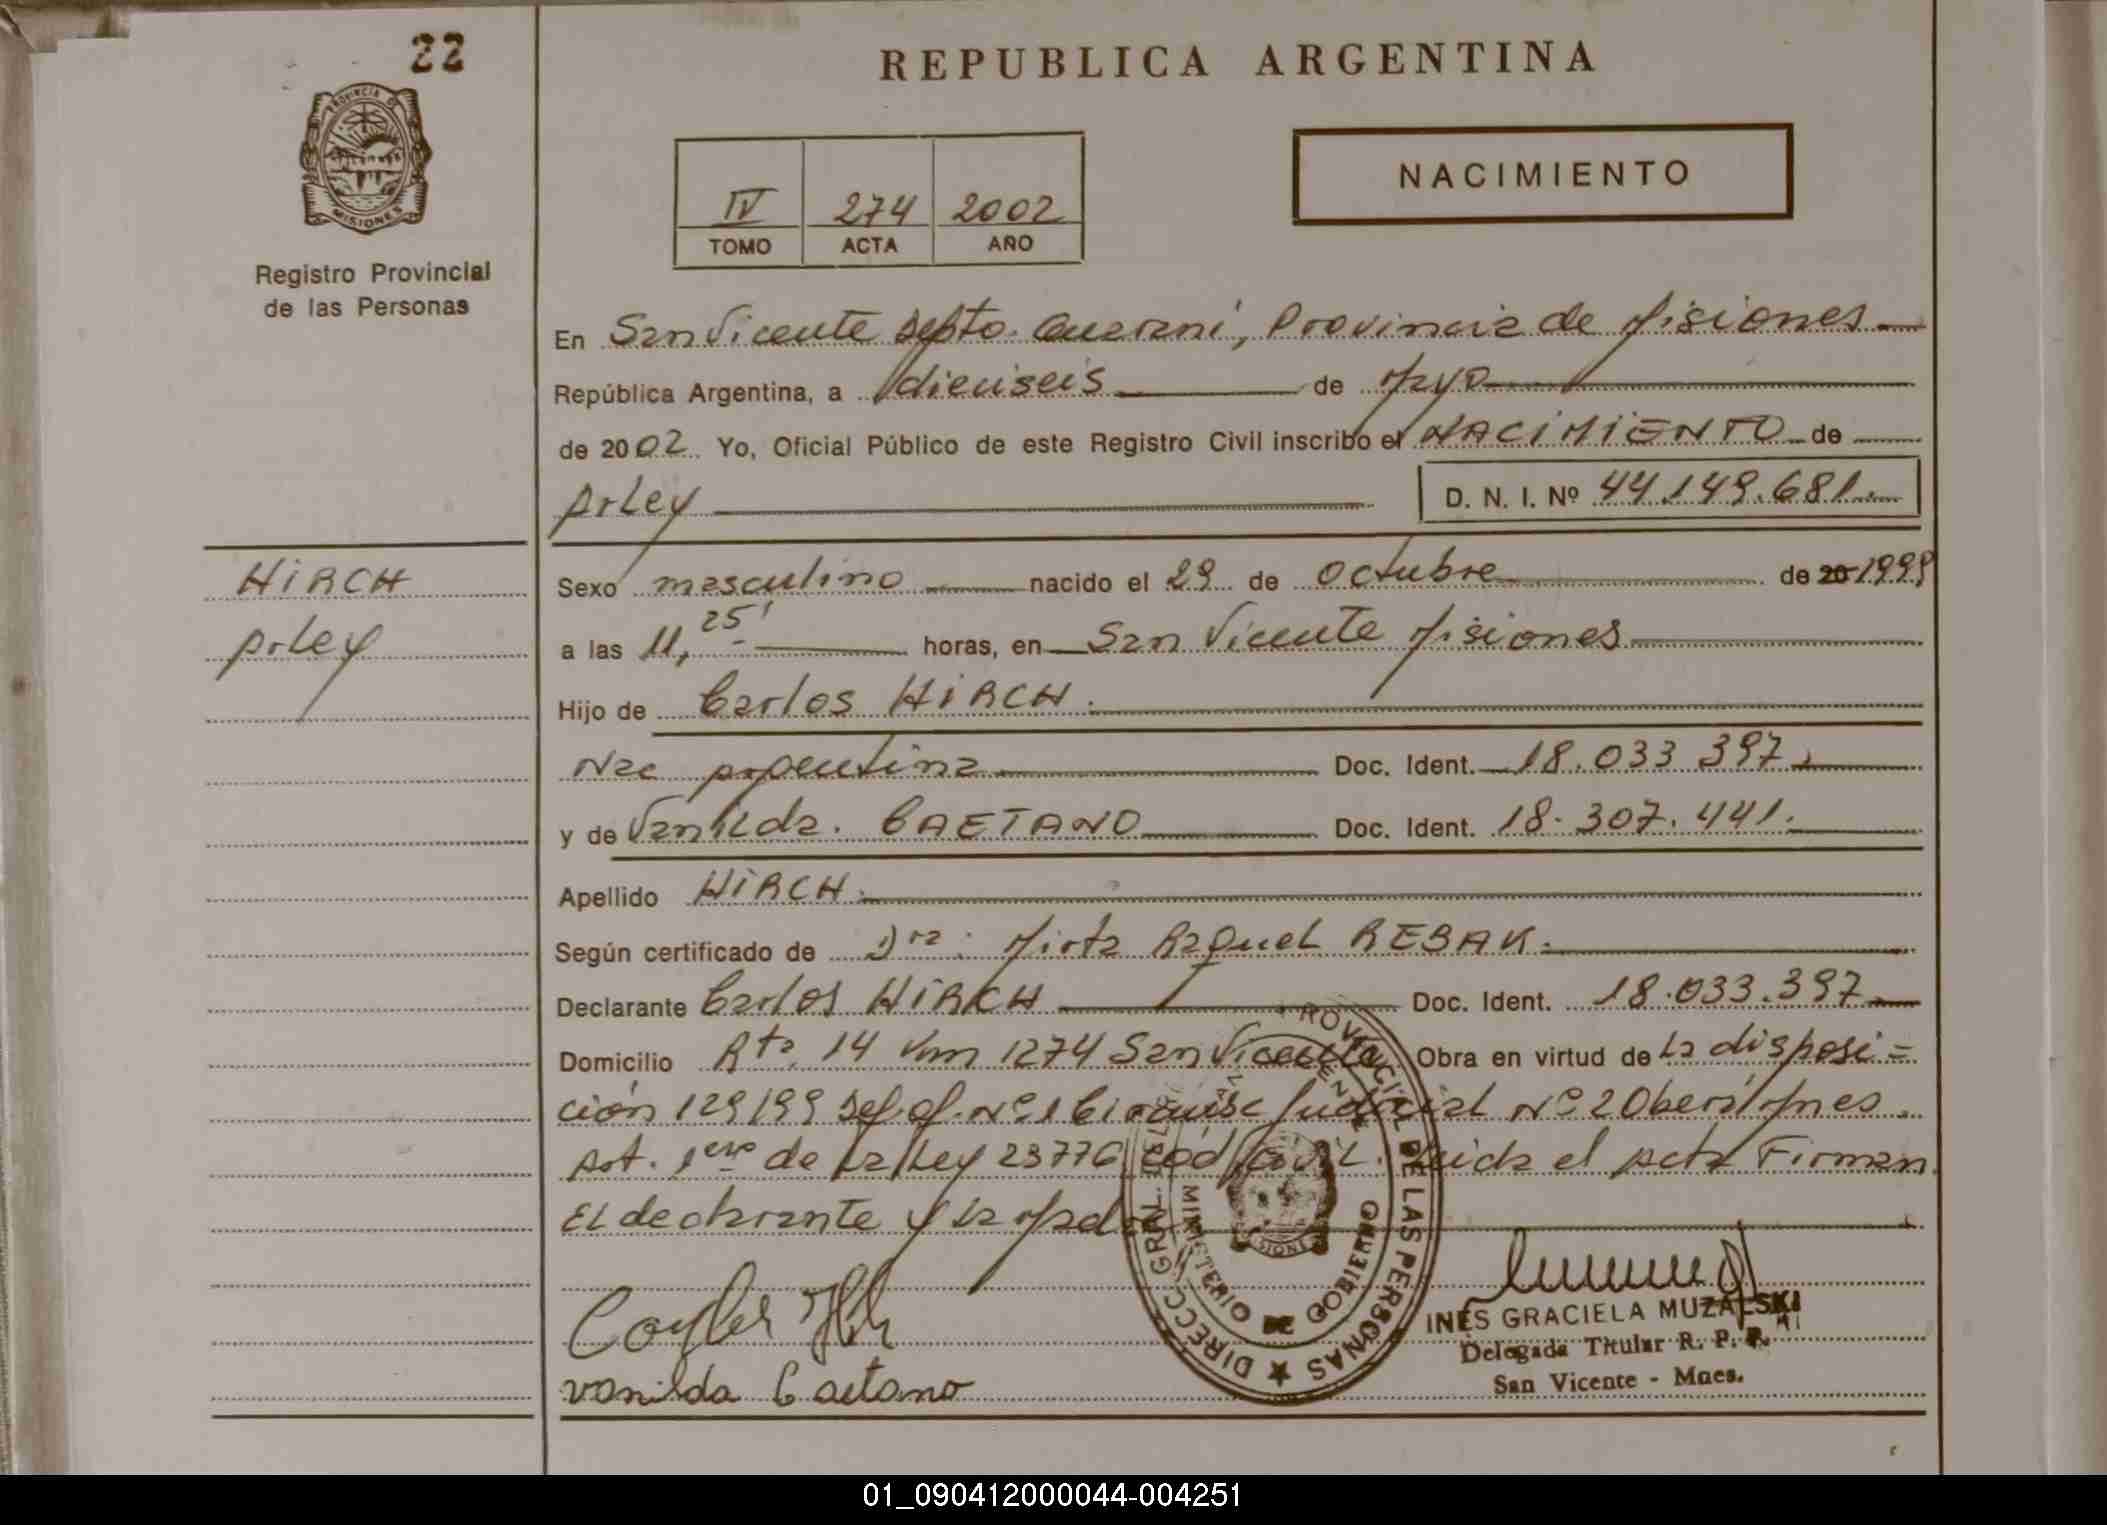 22
REPUBLICA ARGENTINA
PROVINCIA DE
MISIONES
Registro Provincial
de las Personas
IV 274 2002
TOMO ACTA AÑO
NACIMIENTO
En San Vicente Depto. Guaraní, Provincia de Misiones
República Argentina, a dieciseis de Mayo
de 2002. Yo, Oficial Público de este Registro Civil inscribo el NACIMIENTO de
Arley D. N. I. Nº 44.149.681.
HIRCH
Arley
Sexo masculino nacido el 29 de octubre de 20 1999
a las 11,25' horas, en San Vicente Misiones
Hijo de Carlos HIRCH.
Nac Argentina Doc. Ident. 18.033.397
y de Vanilda. CAETANO Doc. Ident. 18.307.441.
Apellido HIRCH.
Según certificado de Dra. Mirta Raquel REBAK.
Declarante Carlos HIRCH Doc. Ident. 18.033.397
Domicilio Rta. 14 Km 1274 San Vicente Obra en virtud de La disposi=
ción 129/99 Def. of. Nº 1 Judicial Nº 2 Oberá Mnes.
Art. 1ero de La Ley 23776 Cod Civil. Leida el Acta Firman
El declarante y La Madre
Carlos Hirch
Vanilda Caetano
DIRECC GRAL. DEL PROVINCIAL DE LAS PERSONAS
MINISTERIO DE GOBIERNO
INES GRACIELA MUZALSKI
Delegada Titular R. P. P.
San Vicente - Mnes.
01_090412000044-004251